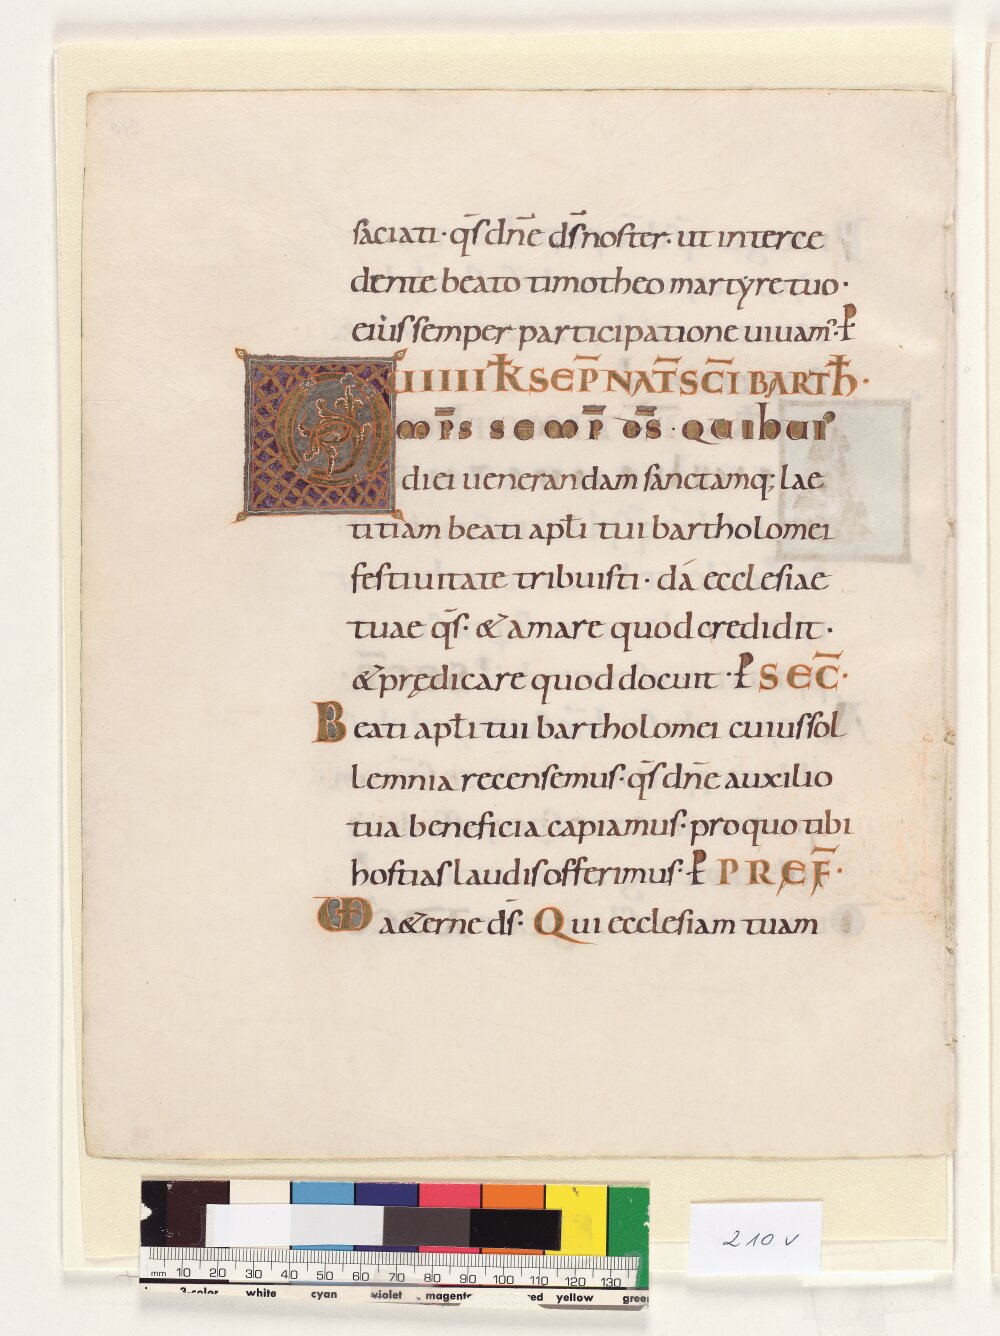 saciati· q̄s dn̄e ds̄ noster· ut interce
dente beato timotheo martyre tuo·
eius semper participatione uiuam̄·ꝑ
UIIIII K̄ SEP̄ NAT̄ SC̄I BARTH̄·
O mp̄s semp̄ ds̄· qui huius
diei uenerandam sanctamq; lae
titiam beati apłi tui bartholomei
festiuitate tribuisti· da ecclesiae
tuae q̄s· & amare quod credidit·
& prędicare quod docuit·ꝑ SEC̄·
Beati apłi tui bartholomei cuius sol
lemnia recensemus· q̄s dn̄e auxilio
tua beneficia capiamus· pro quo tibi
hostias laudis offerimus·ꝑ PREF̄·
VD a&erne ds̄· Qui ecclesiam tuam
mm 10 20 30 40 50 60 70 80 90 100 110 120 130
3-color white cyan violet magenta red yellow green
210 v